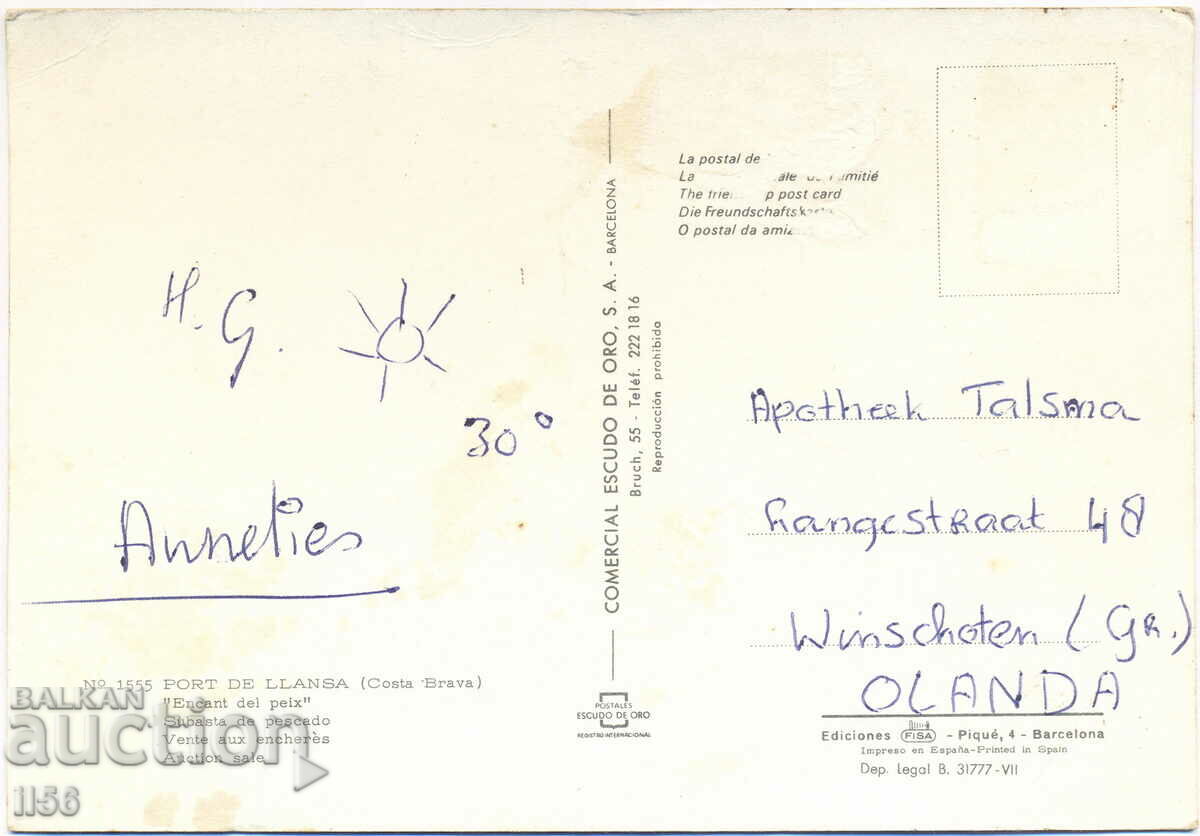 H. G.
30°
Annelies
Nº 1555 PORT DE LLANSA (Costa Brava)
"Encant del peix"
Subasta de pescado
Vente aux encherès
Auction sale
BALKAN
auction
1156
COMERCIAL ESCUDO DE ORO, S. A. - BARCELONA
Bruch, 55 - Teléf. 222 18 16
Reproducción prohibida
POSTALES
ESCUDO DE ORO
REGISTRO INTERNACIONAL
La postal de
La
The post card
Die Freundschaftskarte
O postal da
Apotheek Talsma
Langestraat 48
Winschoten (Gr.)
OLANDA
Ediciones FISA - Piqué, 4 - Barcelona
Impreso en España-Printed in Spain
Dep. Legal B. 31777-VII